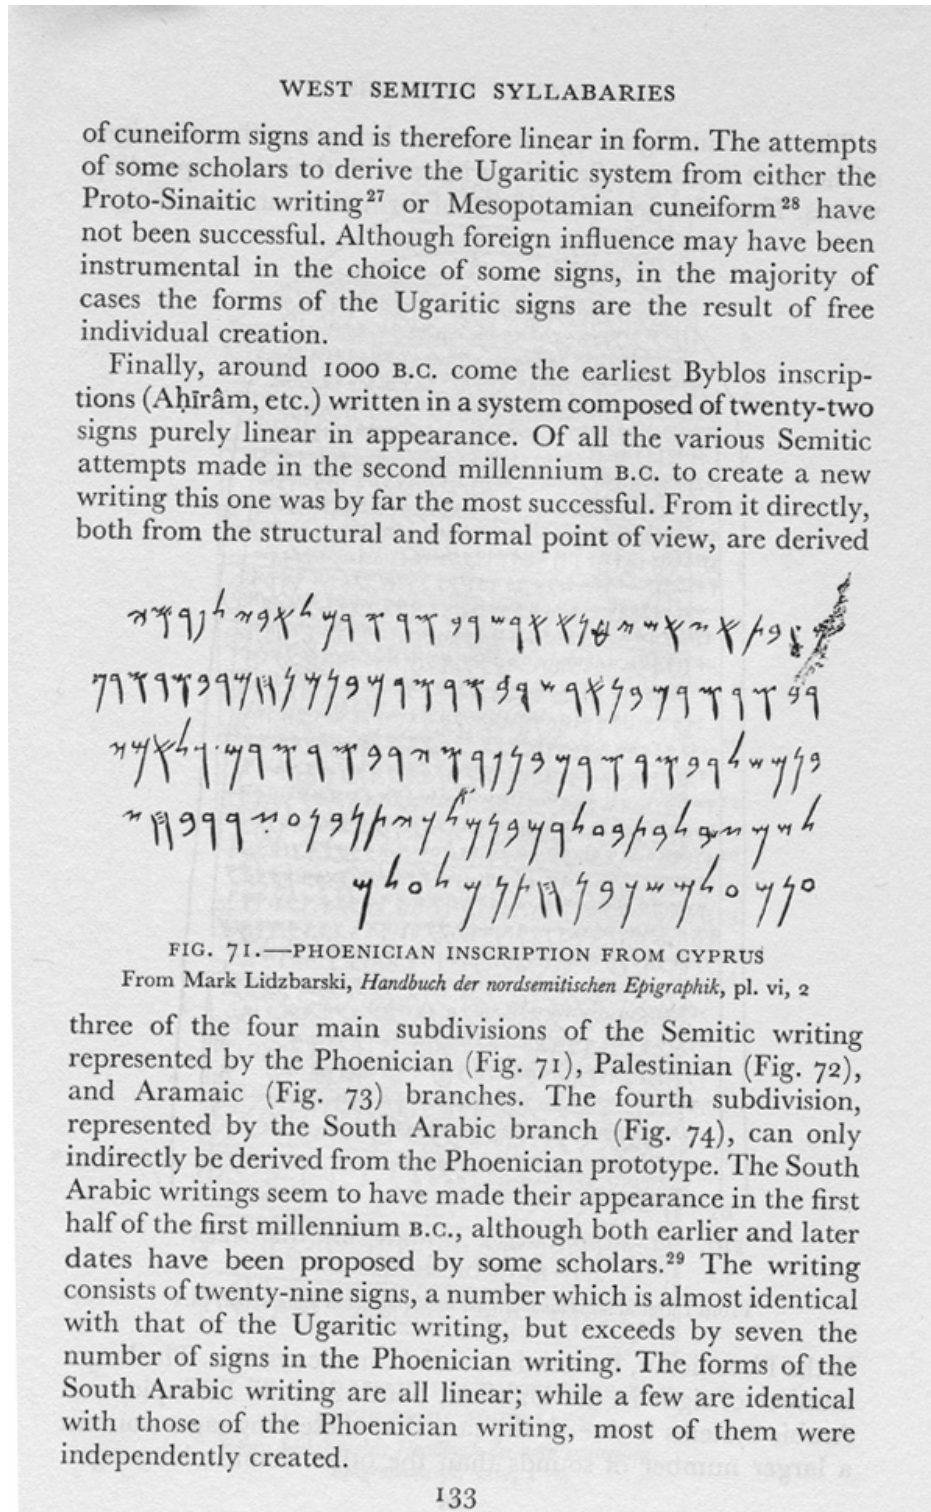 WEST SEMITIC SYLLABARIES
of cuneiform signs and is therefore linear in form. The attempts
of some scholars to derive the Ugaritic system from either the
Proto-Sinaitic writing²⁷ or Mesopotamian cuneiform²⁸ have
not been successful. Although foreign influence may have been
instrumental in the choice of some signs, in the majority of
cases the forms of the Ugaritic signs are the result of free
individual creation.
Finally, around 1000 B.C. come the earliest Byblos inscrip-
tions (Aḥīrâm, etc.) written in a system composed of twenty-two
signs purely linear in appearance. Of all the various Semitic
attempts made in the second millennium B.C. to create a new
writing this one was by far the most successful. From it directly,
both from the structural and formal point of view, are derived
FIG. 71.—PHOENICIAN INSCRIPTION FROM CYPRUS
From Mark Lidzbarski, Handbuch der nordsemitischen Epigraphik, pl. vi, 2
three of the four main subdivisions of the Semitic writing
represented by the Phoenician (Fig. 71), Palestinian (Fig. 72),
and Aramaic (Fig. 73) branches. The fourth subdivision,
represented by the South Arabic branch (Fig. 74), can only
indirectly be derived from the Phoenician prototype. The South
Arabic writings seem to have made their appearance in the first
half of the first millennium B.C., although both earlier and later
dates have been proposed by some scholars.²⁹ The writing
consists of twenty-nine signs, a number which is almost identical
with that of the Ugaritic writing, but exceeds by seven the
number of signs in the Phoenician writing. The forms of the
South Arabic writing are all linear; while a few are identical
with those of the Phoenician writing, most of them were
independently created.
133